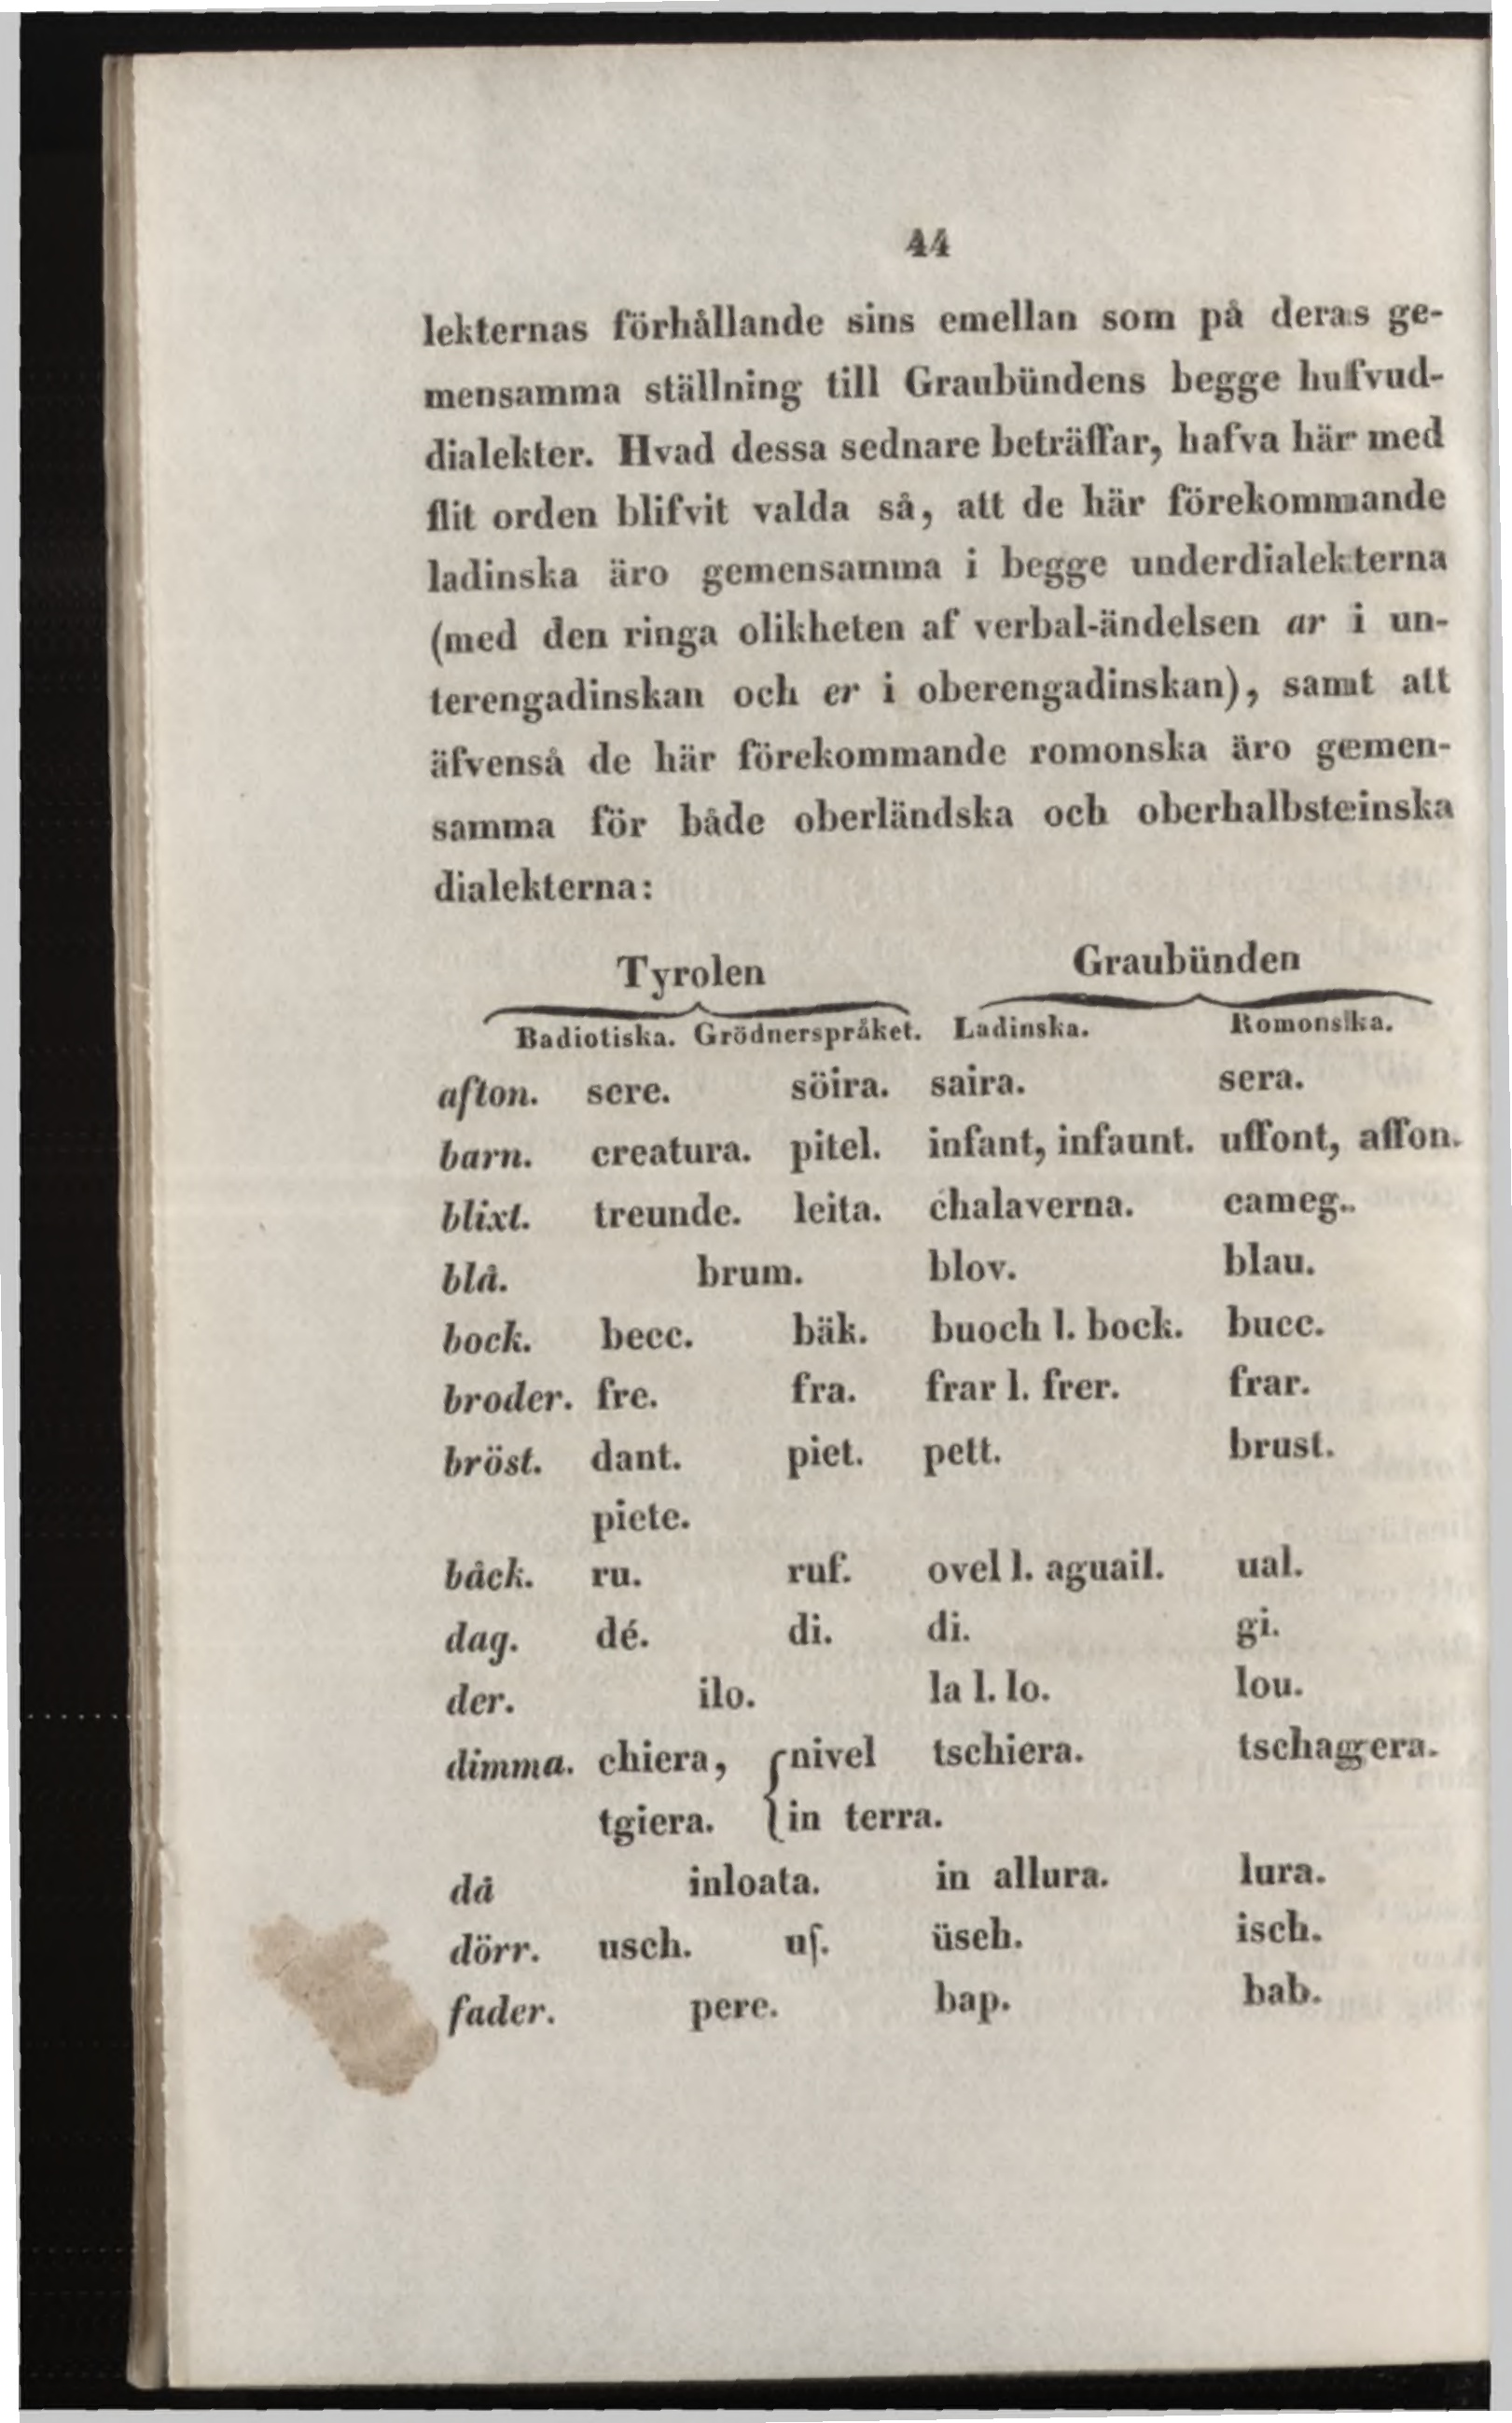 44
lekternas förhållande sins emellan som på deras ge-
mensamma ställning till Graubündens begge hufvud-
dialekter. Hvad dessa sednare beträffar, hafva här med
flit orden blifvit valda så, att de här förekommande
ladinska äro gemensamma i begge underdialekterna
(med den ringa olikheten af verbal-ändelsen ar i un-
terengadinskan och er i oberengadinskan), samt att
äfvenså de här förekommande romonska äro gemen-
samma för både oberländska och oberhalbsteinska
dialekterna:
Tyrolen Graubünden
Badiotiska. Grödnerspråket. Ladinska. Romonska.
afton. sere. söira. saira. sera.
barn. creatura. pitel. infant, infaunt. uffont, affon.
blixt. treunde. leita. chalaverna. cameg.
blå. brum. blov. blau.
bock. becc. bäk. buoch l. bock. bucc.
broder. fre. fra. frar l. frer. frar.
bröst. dant. piet. pett. brust.
piete.
bäck. ru. ruf. ovel l. aguail. ual.
dag. dé. di. di. gi.
der. ilo. la l. lo. lou.
dimma. chiera, nivel tschiera. tschaggera.
tgiera. in terra.
då inloata. in allura. lura.
dörr. usch. uſ. üsch. isch.
fader. pere. bap. bab.